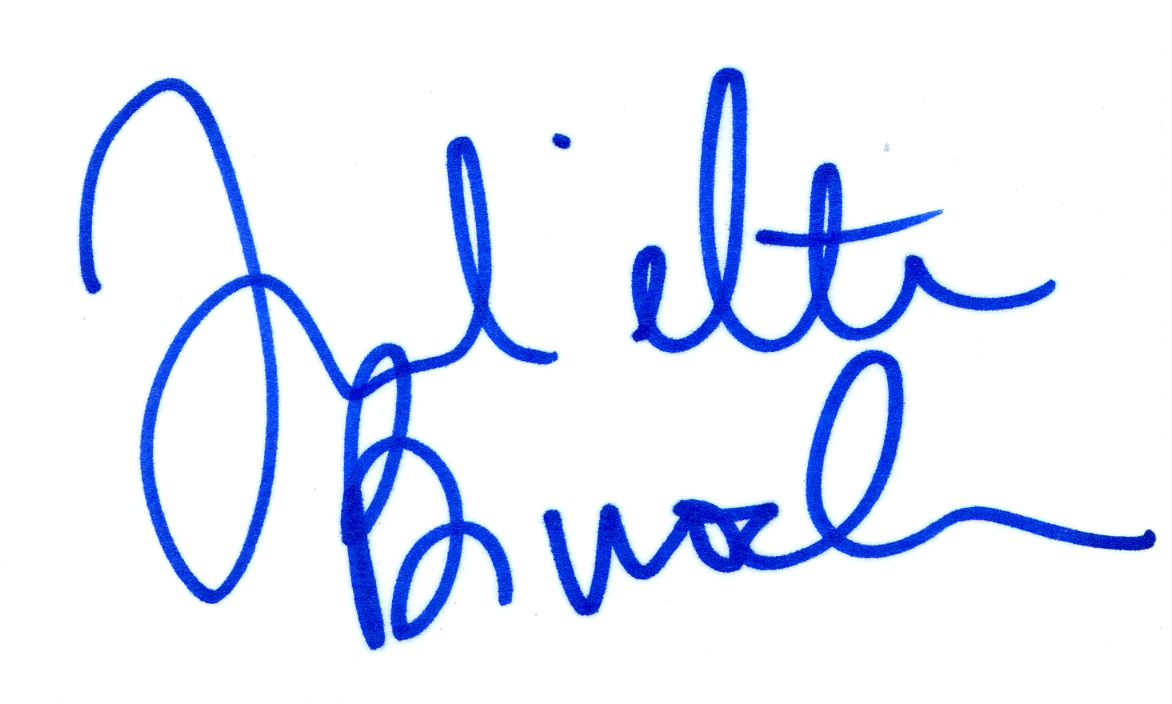 Juliette
Binoche